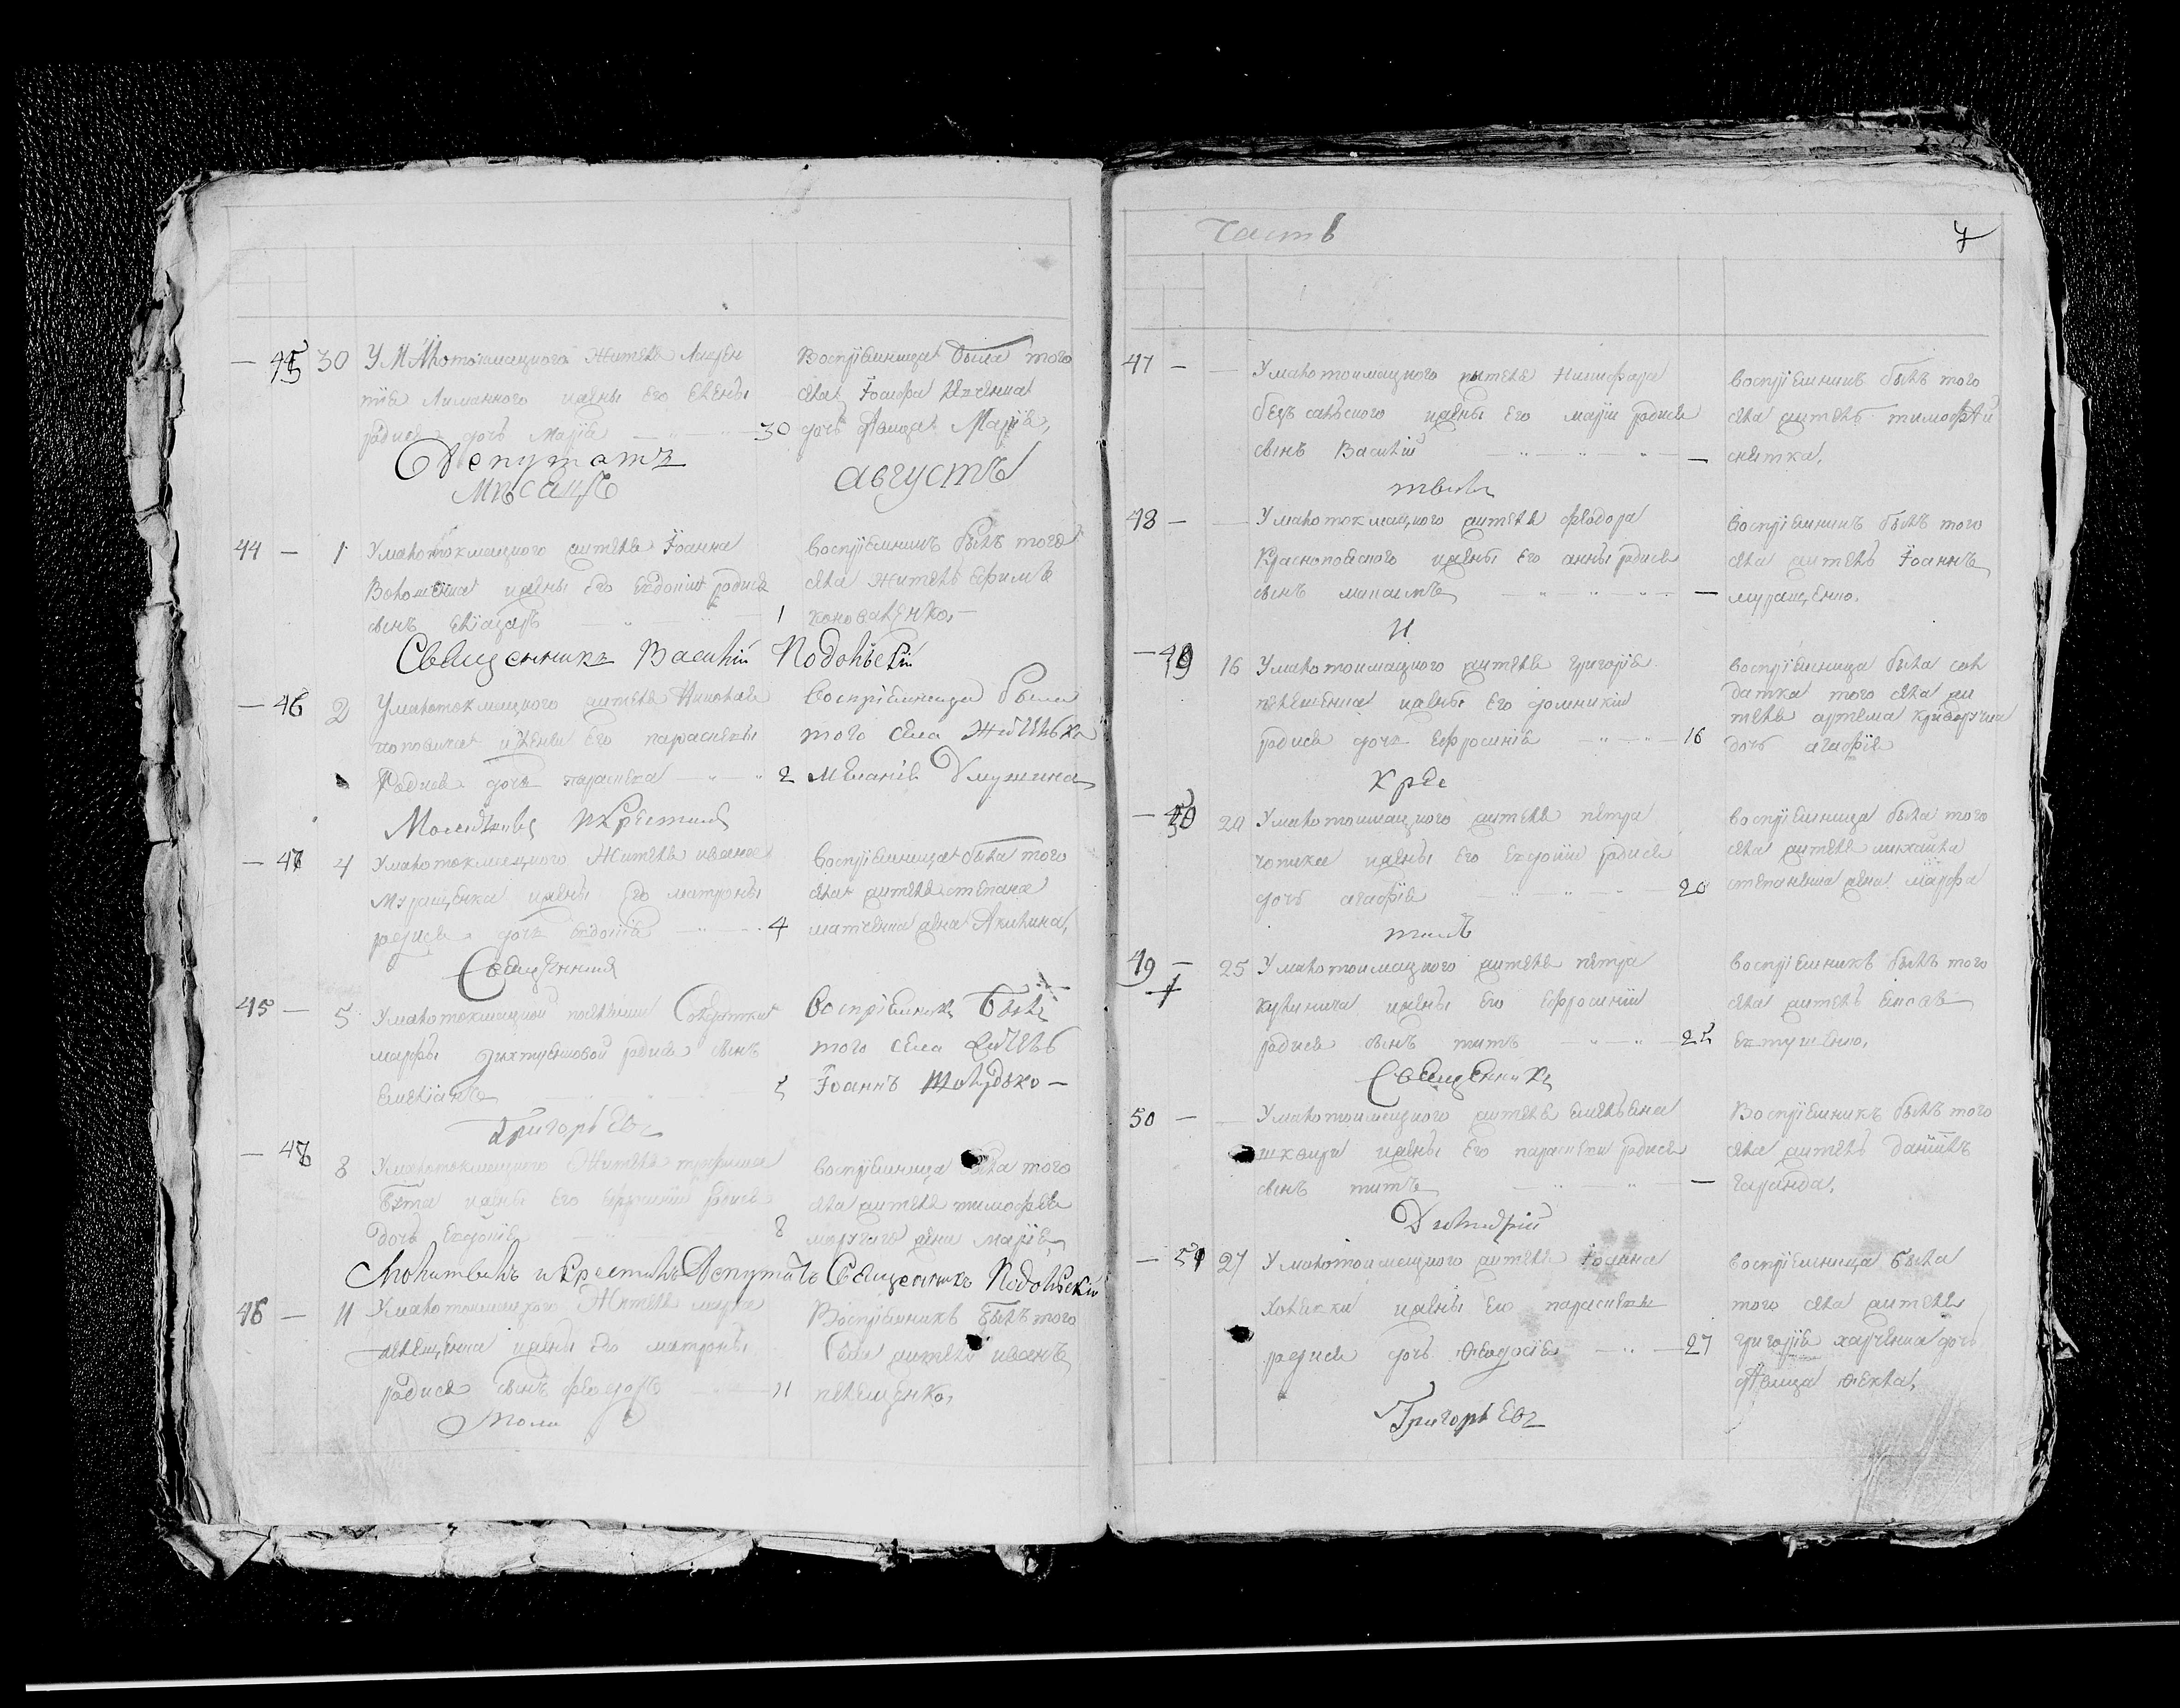 — 45 30 У Малотокмацкого жителя Лаврен
тія Лиманного ижены его Елены
родися дочь Марія — 30
Воспріемница была того
села Іосифа Ильченка
дочь девица Марія,
Депутатъ
Мѣсацъ августъ
44 — 1 Умалотокмацкого жителя Іоанна
Волошина ижены его Евдокіи родися
сынъ Еліазаръ — 1
воспріемникъ былъ того
села житель Ефимъ
коноваленко —
Священникъ Василій Подольскій
— 46 2 Умалотокмацкого жителя Николая
поповича ижены его параскевы
Родися дочь параскева — 2
воспріемница была
того села жителька
Меланія
Молитвов. икрестил
— 47 4 Умалотокмацкого жителя ивана
Муращенка ижены его матроны
родися дочь Евдокія — 4
воспріемница была того
села жителя степана
жена Акилина,
Священник
45 — 5 Умалотокмацкой солдатки
марфы родися сынъ
Емеліанъ 5
воспріемникъ былъ
того села житель
Іоаннъ —
Григорьевъ
— 48 8 Умалотокмацкого жителя трофима
ижены его родися
дочь Евдокія 8
воспріемница была того
села жителя тимофея
жена марія,
Молитвилъ икрестилъ Депутатъ Священникъ Подольскій
46 — 11 Умалотокмацкого жителя марка
пелешенка ижены его матроны
родися сынъ феодоръ — 11
Воспріемникъ былъ того
села житель иванъ
пелешенко,
моли
часть 7
47 — — Умалотокмацкого жителя Никифора
безсальского ижены его маріи родися
сынъ Василій — —
воспріемникъ былъ того
села житель тимофѣй
снитка,
твилъ
48 — — Умалотокмацкого жителя феодора
Краснопоясного ижены его анны родися
сынъ — —
воспріемникъ былъ того
села житель Іоаннъ
муращенко,
и
— 49 16 Умалотокмацкого жителя григорія
пелешенка ижены его домникіи
родися дочь Ефросинія — 16
воспріемница была сол
датка того села жи
теля артема криворучка
дочь агафія
кре
— 50 20 Умалотокмацкого жителя петра
чопика ижены его Евдокіи родися
дочь агафія — 20
воспріемница была того
села жителя михаила
степаненка жена марфа
стилъ
49 — 25 Умалотокмацкого жителя петра
кулинича ижены его Ефросиніи
родися сынъ титъ — 25
воспріемникъ былъ того
села житель
Евтушенко,
Священникъ
50 — — Умалотокмацкого жителя Емельяна
шкоири ижены его параскевы родися
сынъ титъ — —
Воспріемникъ былъ того
села житель Даніилъ
Димитрій
— 51 27 Умалотокмацкого жителя Іоанна
ижены его параскевы
родися дочь Ѳеодосія — 27
воспріемница была
того села жителя
григорія харченка дочь
девица Ѳекла,
Григорьевъ